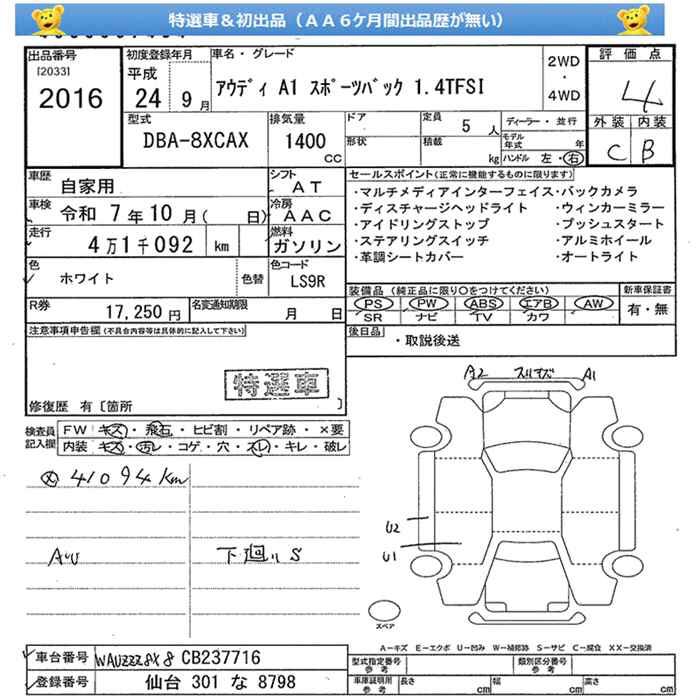 特選車＆初出品（ＡＡ６ケ月間出品歴が無い）
出品番号
[2033]
2016
初度登録年月
平成
24 9 月
車名・グレード
アウディ A1 スポーツバック 1.4TFSI
2WD
・
4WD
評価点
4
外装 内装
C B
型式
DBA-8XCAX
排気量
1400
cc
ドア
形状
定員 5 人
積載 kg
ディーラー・並行
モデル年式 年
ハンドル 左・右
車歴 自家用
シフト AT
車検 令和 7年10月( 日)
冷房 AAC
走行 4万1千092 km
燃料 ガソリン
色 ホワイト 色替
色コード LS9R
R券 17,250 円
名変通知期限 月 日
セールスポイント(正常に機能するものに限ります)
・マルチメディアインターフェイス・バックカメラ
・ディスチャージヘッドライト ・ウィンカーミラー
・アイドリングストップ ・プッシュスタート
・ステアリングスイッチ ・アルミホイール
・革調シートカバー ・オートライト
装備品(純正品に限り○をつけてください)
PS PW ABS エアB AW
SR ナビ TV カワ
新車保証書
有・無
後日品 ・取説後送
注意事項申告欄(不具合内容等は具体的に記入して下さい)
特選車
修復歴 有〔箇所 〕
検査員記入欄
FW キズ・飛石・ヒビ割・リペア跡・×要
内装 キズ・汚レ・コゲ・穴・スレ・キレ・破レ
41094km
下廻りS
A2 スリキズ A1
U2
U1
スペア
A－キズ E－エクボ U－凹み W－補修跡 S－サビ C－腐食 XX－交換済
車台番号 WAUZZZ8X8CB237716
登録番号 仙台 301 な 8798
型式指定番号 参考
類別区分番号 参考
車庫証明用 参考
長さ cm 幅 cm 高さ cm